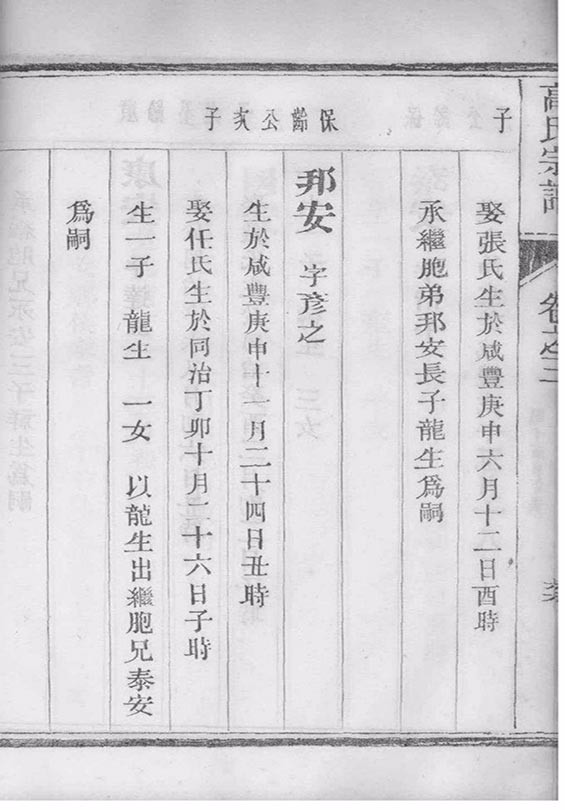 高氏宗譜
卷之二
子
娶張氏生於咸豐庚申六月十二日酉時
承繼胞弟邦安長子龍生爲嗣
保齡公次子
邦安 字彦之
生於咸豐庚申十一月二十四日丑時
娶任氏生於同治丁卯十月二十六日子時
生一子 龍生 一女 以龍生出繼胞兄泰安
爲嗣